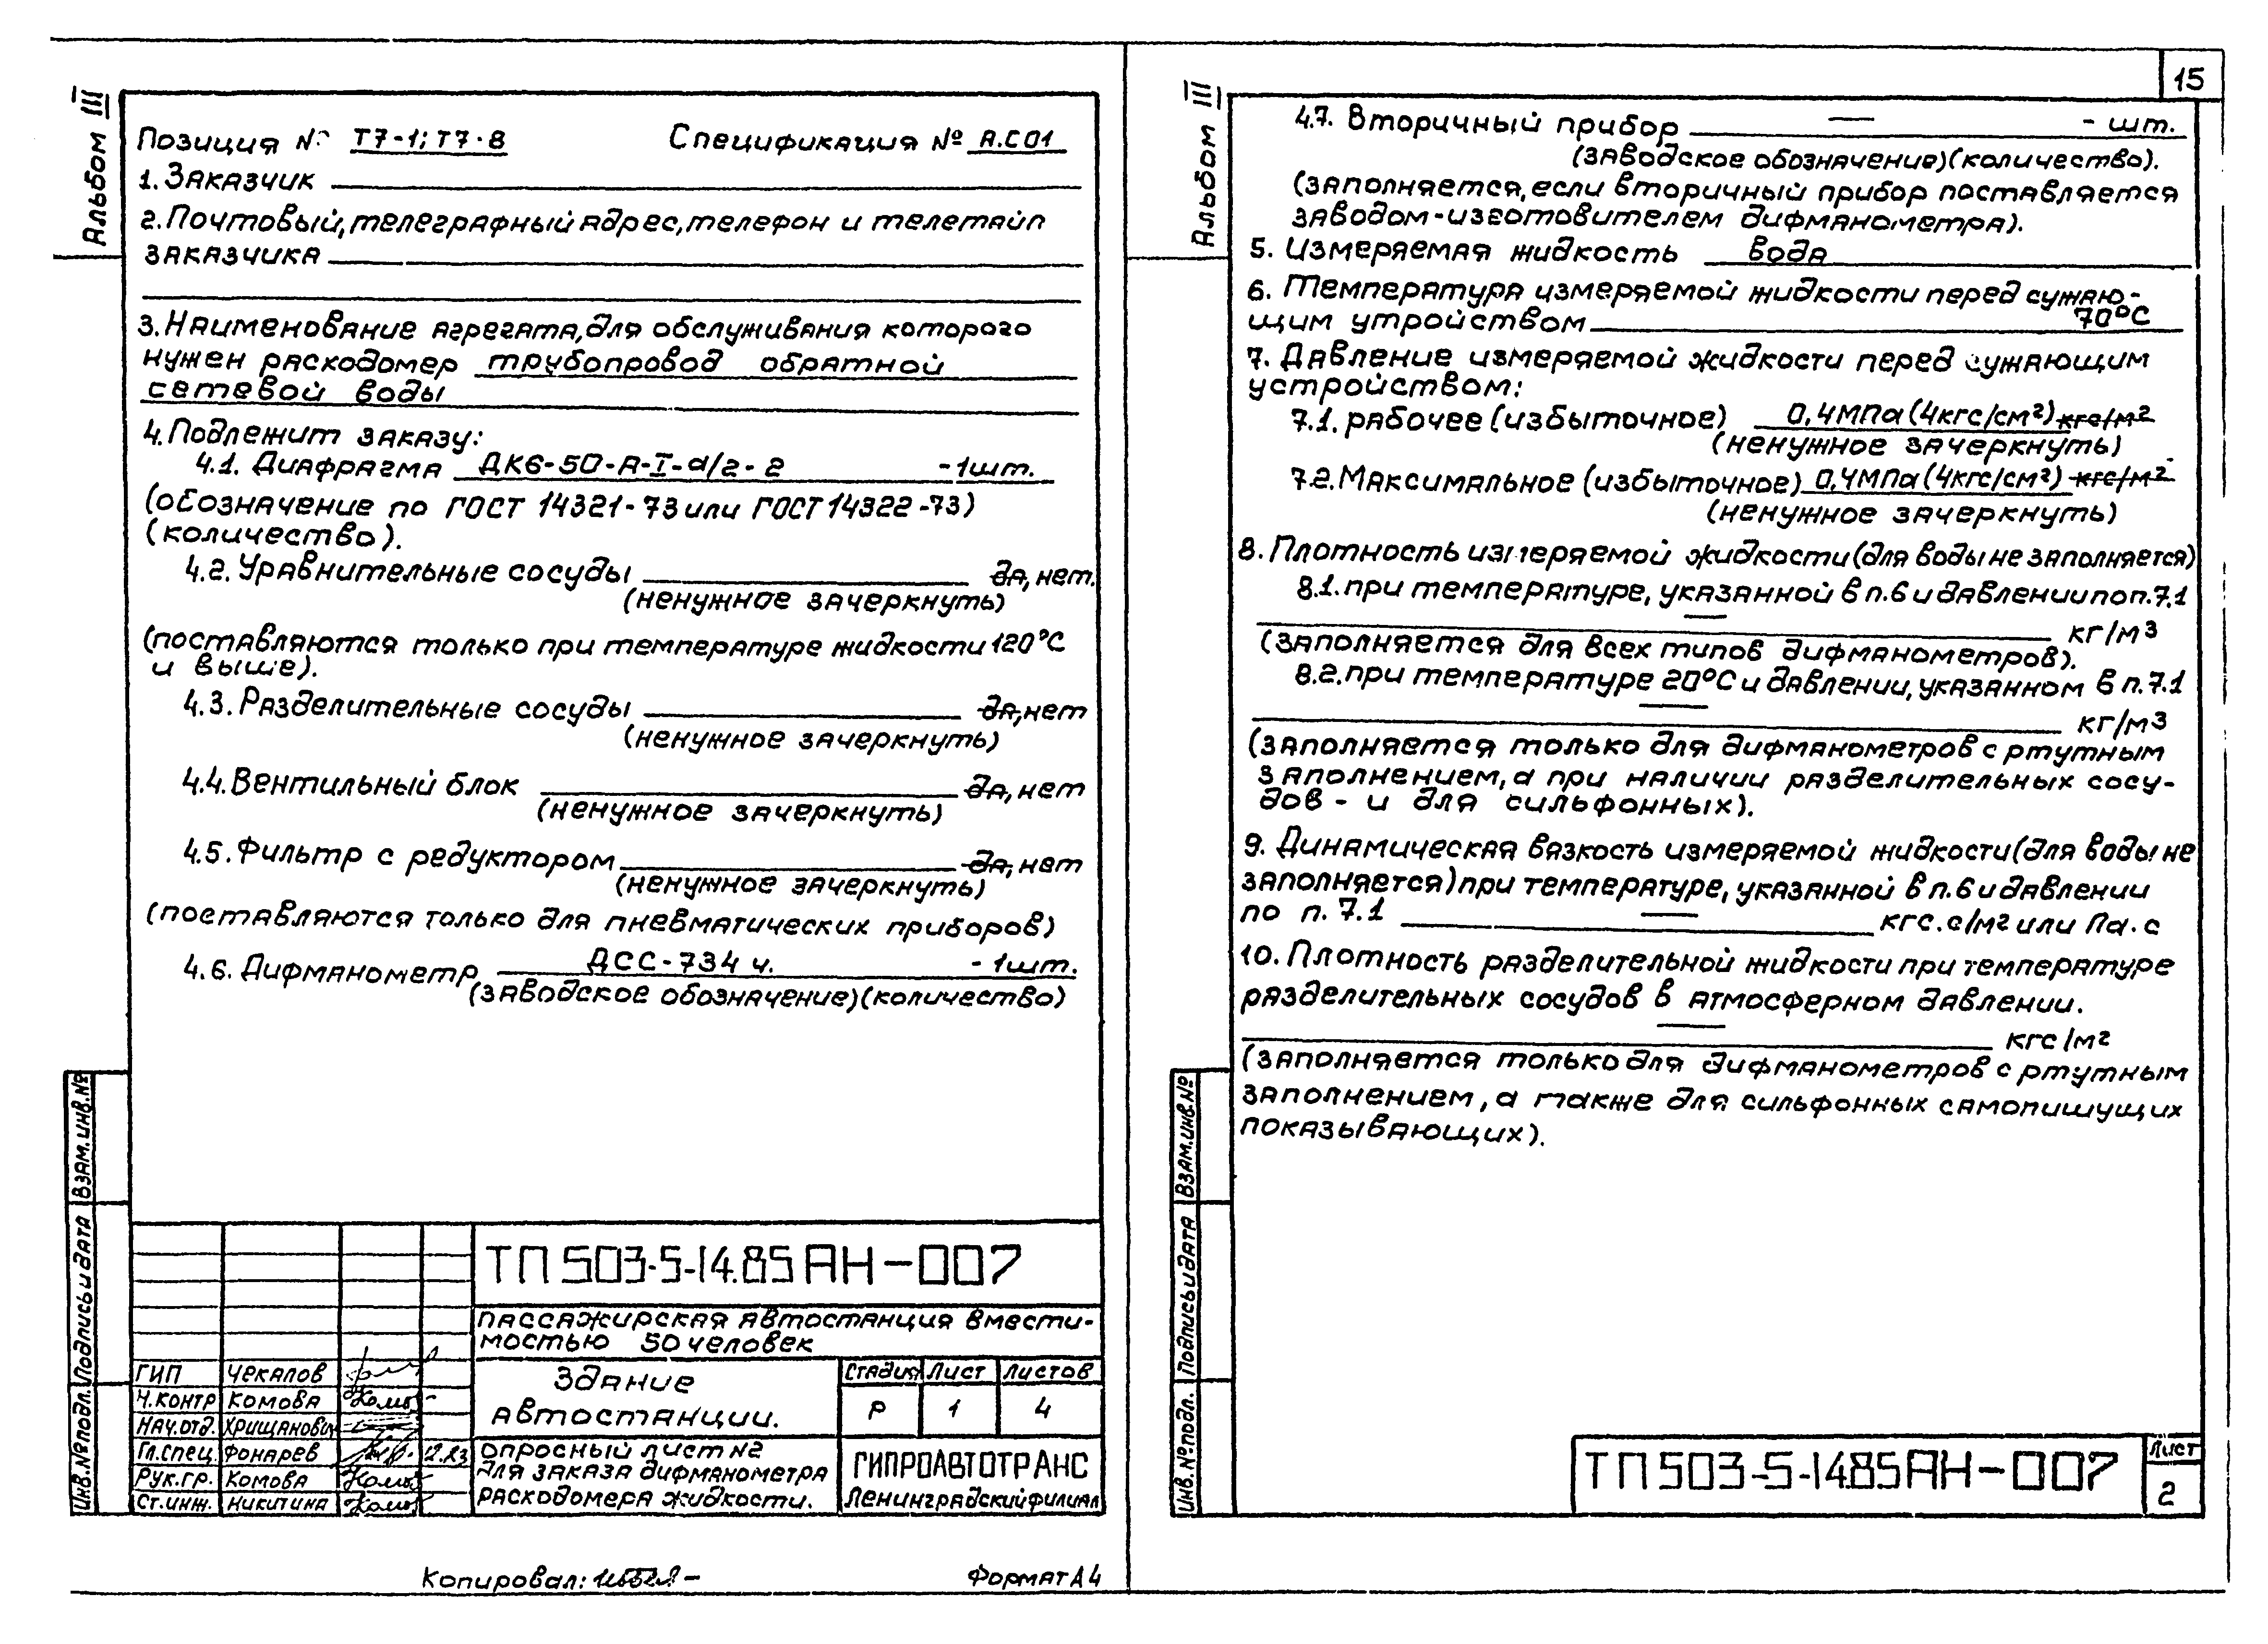 Альбом III
Позиция № Т7-1; Т7-8 Спецификация № А.С01
1. Заказчик
2. Почтовый, телеграфный адрес, телефон и телетайп
заказчика
3. Наименование агрегата, для обслуживания которого
нужен расходомер трубопровод обратной
сетевой воды
4. Подлежит заказу:
4.1. Диафрагма ДК6-50-А-I-а/г-2 -1шт.
(обозначение по ГОСТ 14321-73 или ГОСТ 14322-73)
(количество).
4.2. Уравнительные сосуды да, нет.
(ненужное зачеркнуть)
(поставляются только при температуре жидкости 120°С
и выше).
4.3. Разделительные сосуды да, нет
(ненужное зачеркнуть)
4.4. Вентильный блок да, нет
(ненужное зачеркнуть)
4.5. Фильтр с редуктором да, нет
(ненужное зачеркнуть)
(поставляются только для пневматических приборов)
4.6. Дифманометр ДСС-734 ч. - 1шт.
(заводское обозначение)(количество)
ТП 503-5-14.85 АН-007
пассажирская автостанция вмести-
мостью 50 человек
ГИП Чекалов
Н.контр Комова
Нач.отд. Хрищанович
Гл.спец. Фонарев 12.83
Рук.гр. Комова
Ст.инж. Никитина
Здание
автостанции.
Стадия Лист Листов
Р 1 4
опросный лист №2
для заказа дифманометра
расходомера жидкости.
ГИПРОАВТОТРАНС
Ленинградский филиал
Взам.инв.№
Подпись и дата
Инв.№ подл.
Копировал:
Формат А4
15
Альбом III
4.7. Вторичный прибор — - шт.
(заводское обозначение)(количество).
(заполняется, если вторичный прибор поставляется
заводом-изготовителем дифманометра).
5. Измеряемая жидкость вода
6. Температура измеряемой жидкости перед сужаю-
щим утройством 70°С
7. Давление измеряемой жидкости перед сужающим
устройством:
7.1. рабочее (избыточное) 0,4МПа (4кгс/см²) кгс/м²
(ненужное зачеркнуть)
7.2. Максимальное (избыточное) 0,4МПа (4кгс/см²) кгс/м²
(ненужное зачеркнуть)
8. Плотность измеряемой жидкости (для воды не заполняется)
8.1. при температуре, указанной в п.6 и давлении по п.7.1
— кг/м3
(заполняется для всех типов дифманометров).
8.2. при температуре 20°С и давлении, указанном в п.7.1
— кг/м3
(заполняется только для дифманометров с ртутным
заполнением, а при наличии разделительных сосу-
дов - и для сильфонных).
9. Динамическая вязкость измеряемой жидкости (для воды не
заполняется) при температуре, указанной в п.6 и давлении
по п. 7.1 — кгс.с/м² или Па.с
10. Плотность разделительной жидкости при температуре
разделительных сосудов в атмосферном давлении.
— кгс/м²
(заполняется только для дифманометров с ртутным
заполнением, а также для сильфонных самопишущих
показывающих).
Взам.инв.№
Подпись и дата
Инв.№ подл.
ТП 503-5-14.85 АН-007
Лист
2